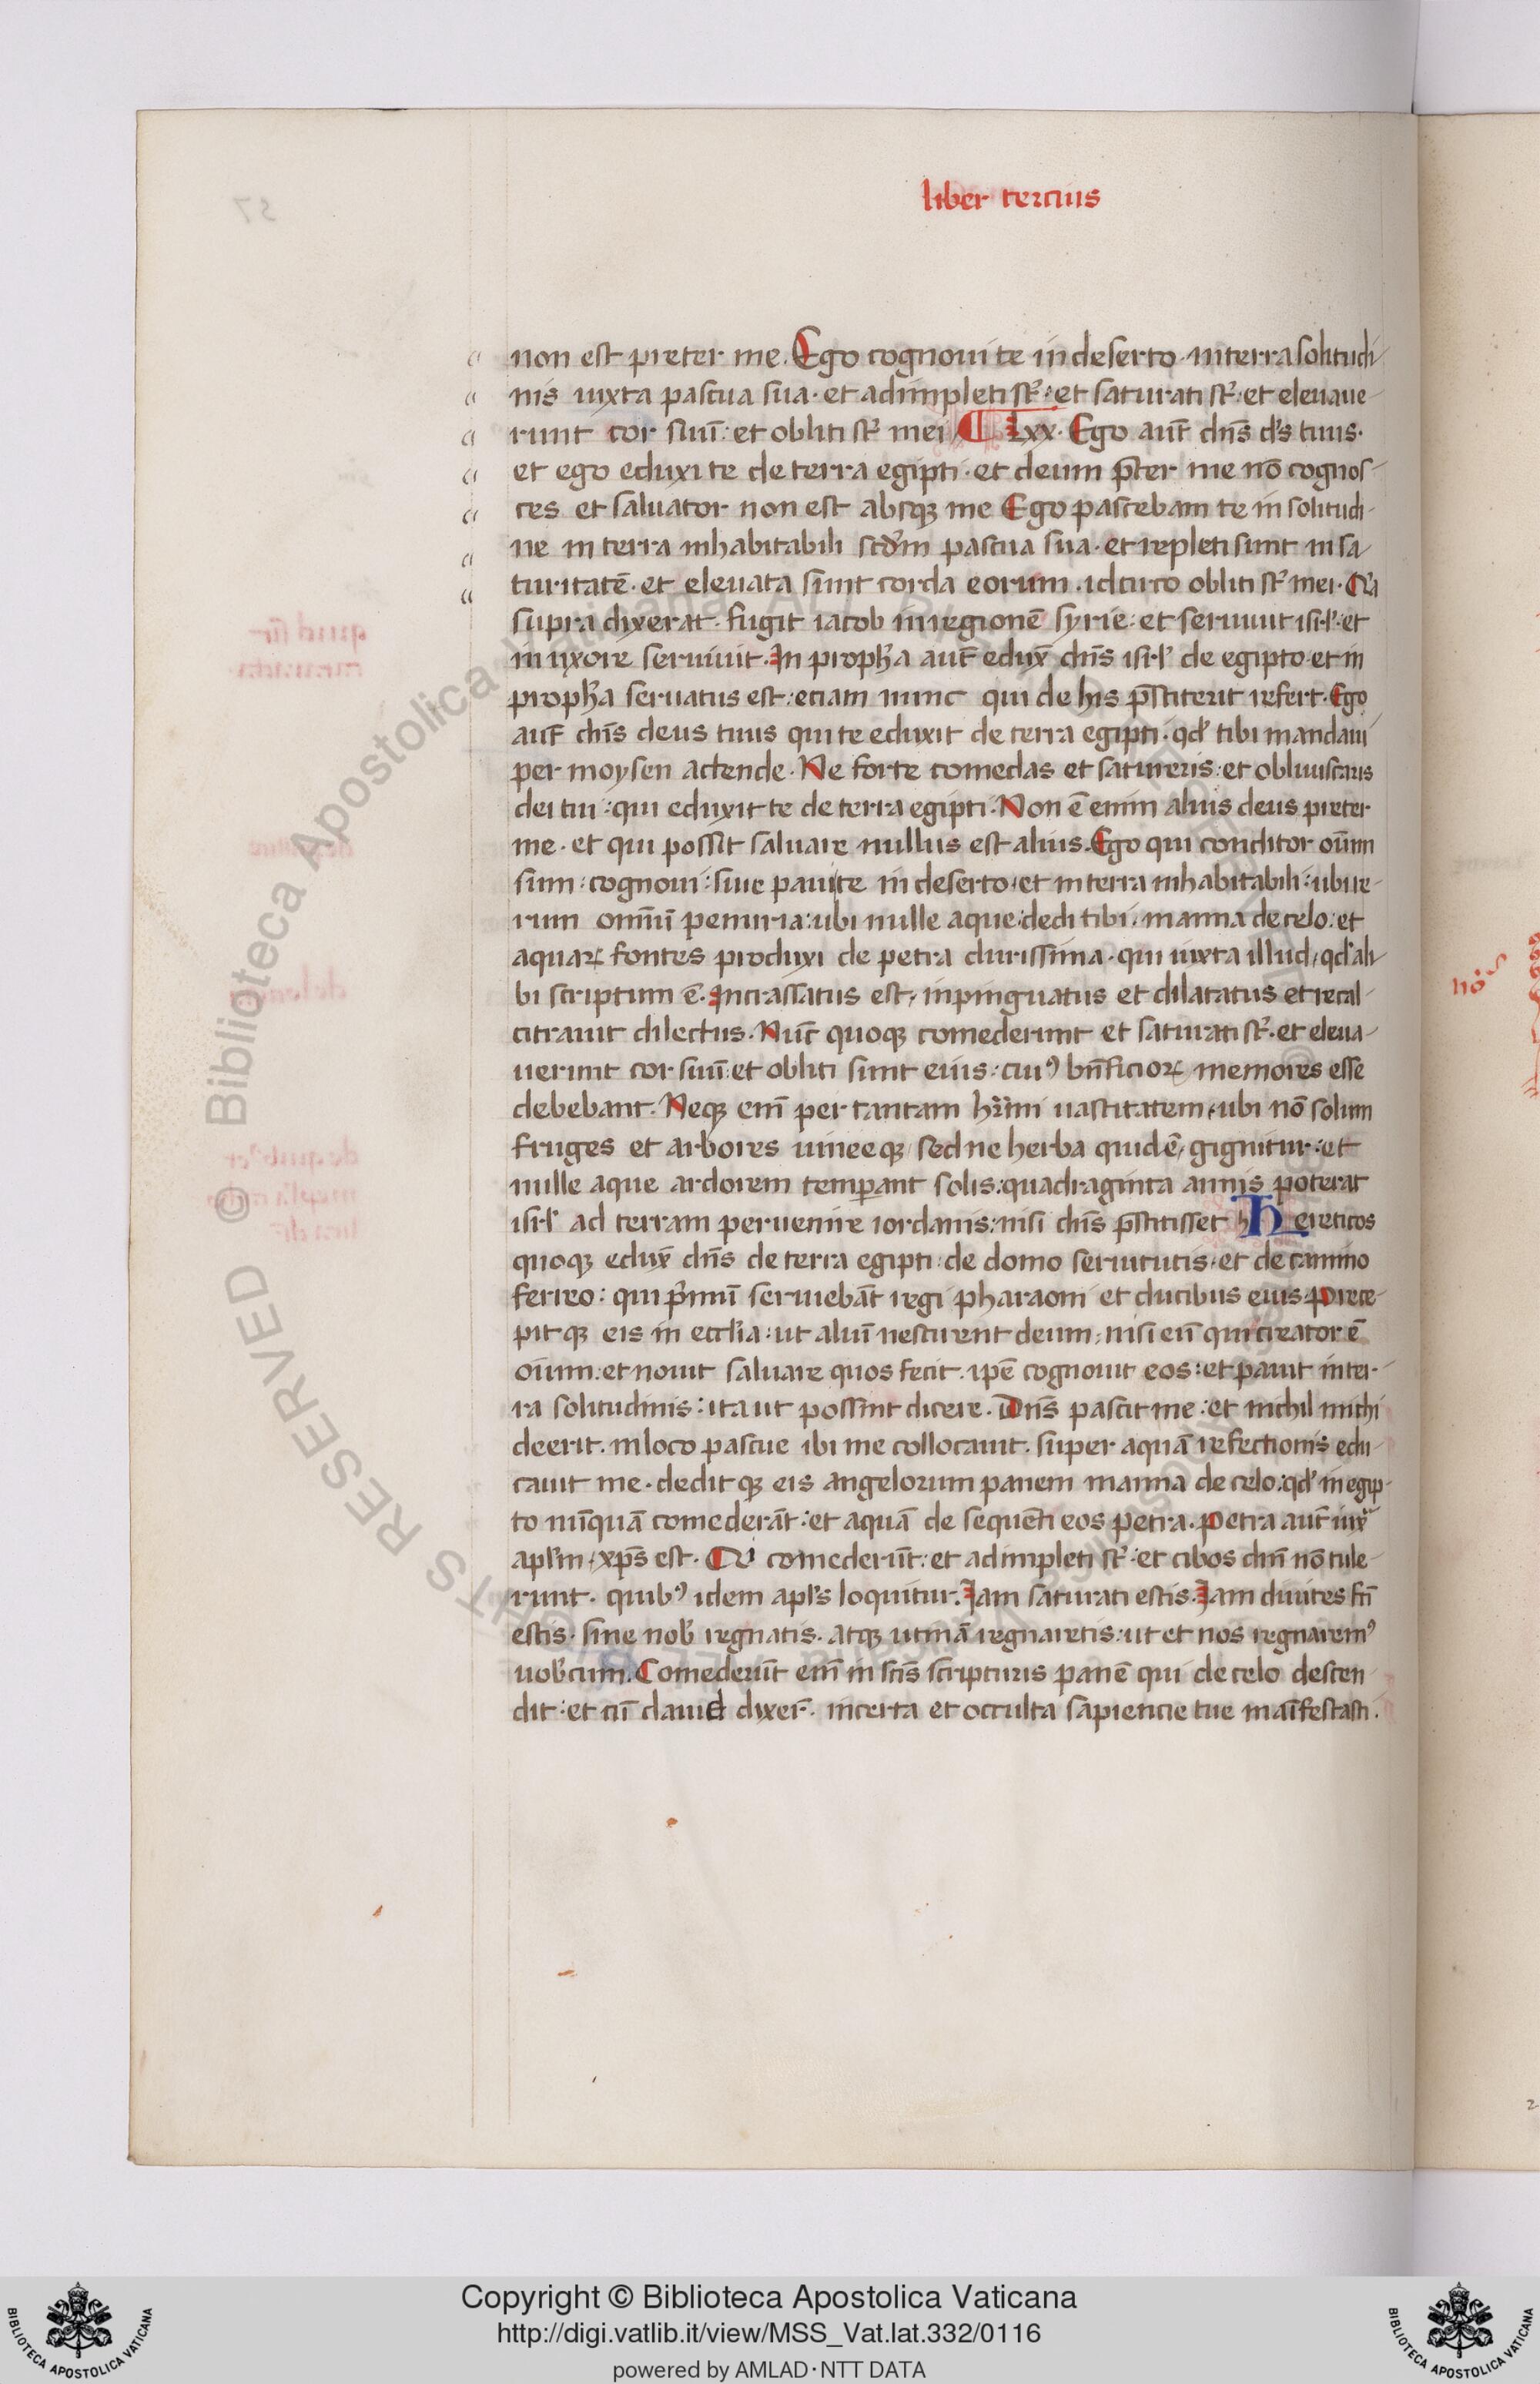 liber tercius
non est preter me. Ego cognoui te in deserto. in terra solitudi-
nis iuxta pascua sua. et adimpleti st᷑: et saturati st᷑: et eleuaue-
runt cor suū: et obliti st᷑ mei. Lxx. Ego aut̄ dn̄s d's tuus.
et ego eduxi te de terra egipti. et deum p̄ter me nō cognos-
ces et saluator non est absqꝫ me Ego pascebam te in solitudi-
ne in terra inhabitabili scd'm pascua sua. et repleti sunt in sa-
turitatē. et eleuata sunt corda eorum. idcirco obliti st᷑ mei. Q̇a
supra dixerat. fugit iacob in regionē syrie: et seruiuit isr̄l: et
in uxore seruiuit. In proph'a aut̄ edux̄ dn̄s isr̄l de egipto. et in
proph'a seruatus est: etiam nunc qui de his p̄stiterit refert. Ego
aut̄ dn̄s deus tuus qui te eduxit de terra egipti. qd' tibi mandaui
per moysen actende. Ne forte comedas et satureris: et obliuiscaris
dei tui: qui eduxit te de terra egipti. Non ē enim alius deus preter
me. et qui possit saluare nullus est alius. Ego qui conditor oīum
sum: cognoui: siue paui te in deserto. et in terra inhabitabili: ubi re-
rum omniū penuria: ubi nulle aque: dedi tibi. manna de celo: et
aquaꝝ fontes produxi de petra durissima. qui iuxta illud, qd' ali-
bi scriptum ē. Incrassatus est, inpinguatus et dilatatus et recal-
citrauit dilectus. Nūc quoqꝫ comederunt et saturati st᷑. et eleua-
uerunt cor suū: et obliti sunt eius: cuiꝰ bn̄ficioꝝ memores esse
debebant. Neqꝫ em̄ per tantam h'imi uastitatem, ubi nō solum
fruges et arbores uineeqꝫ sed ne herba quidē, gignitur: et
nulle aque ardorem temꝑant solis: quadraginta annis poterat
isr̄l ad terram peruenire iordanis: nisi dn̄s p̄stitisset Hereticos
quoqꝫ edux̄ dn̄s de terra egipti: de domo seruitutis. et de camino
ferreo: qui p̄mū seruiebāt regi pharaoni et ducibus eius. prece-
pitqꝫ eis in eccl'ia: ut aliū nescirent deum, nisi eū qui creator ē
oīum: et nouit saluare quos fecit. ip̄e cognouit eos: et pauit in ter-
ra solitudinis: ita ut possint dicere. Dn̄s pascit me: et nichil michi
deerit. in loco pascue ibi me collocauit. super aquā refectionis edu-
cauit me. deditqꝫ eis angelorum panem manna de celo: qd' in egip-
to nūquā comederāt: et aquā de sequenti eos petra. petra aut̄ iux̄
apl'm, xp̄s est. Qui comederūt: et adimpleti st᷑: et cibos dn̄i nō tule-
runt. quibꝰ idem apl's loquitur. Iam saturati estis. Iam diuites fc̄i
estis. sine nob' regnatis. atqꝫ utinā regnaretis: ut et nos regnaremꝰ
uob'cum. Comederūt em̄ in sc̄is scripturis panē qui de celo descen-
dit: et cū dauid dixer̄. incerta et occulta sapiencie tue maīfestasti.
Copyright © Biblioteca Apostolica Vaticana
http://digi.vatlib.it/view/MSS_Vat.lat.332/0116
powered by AMLAD·NTT DATA